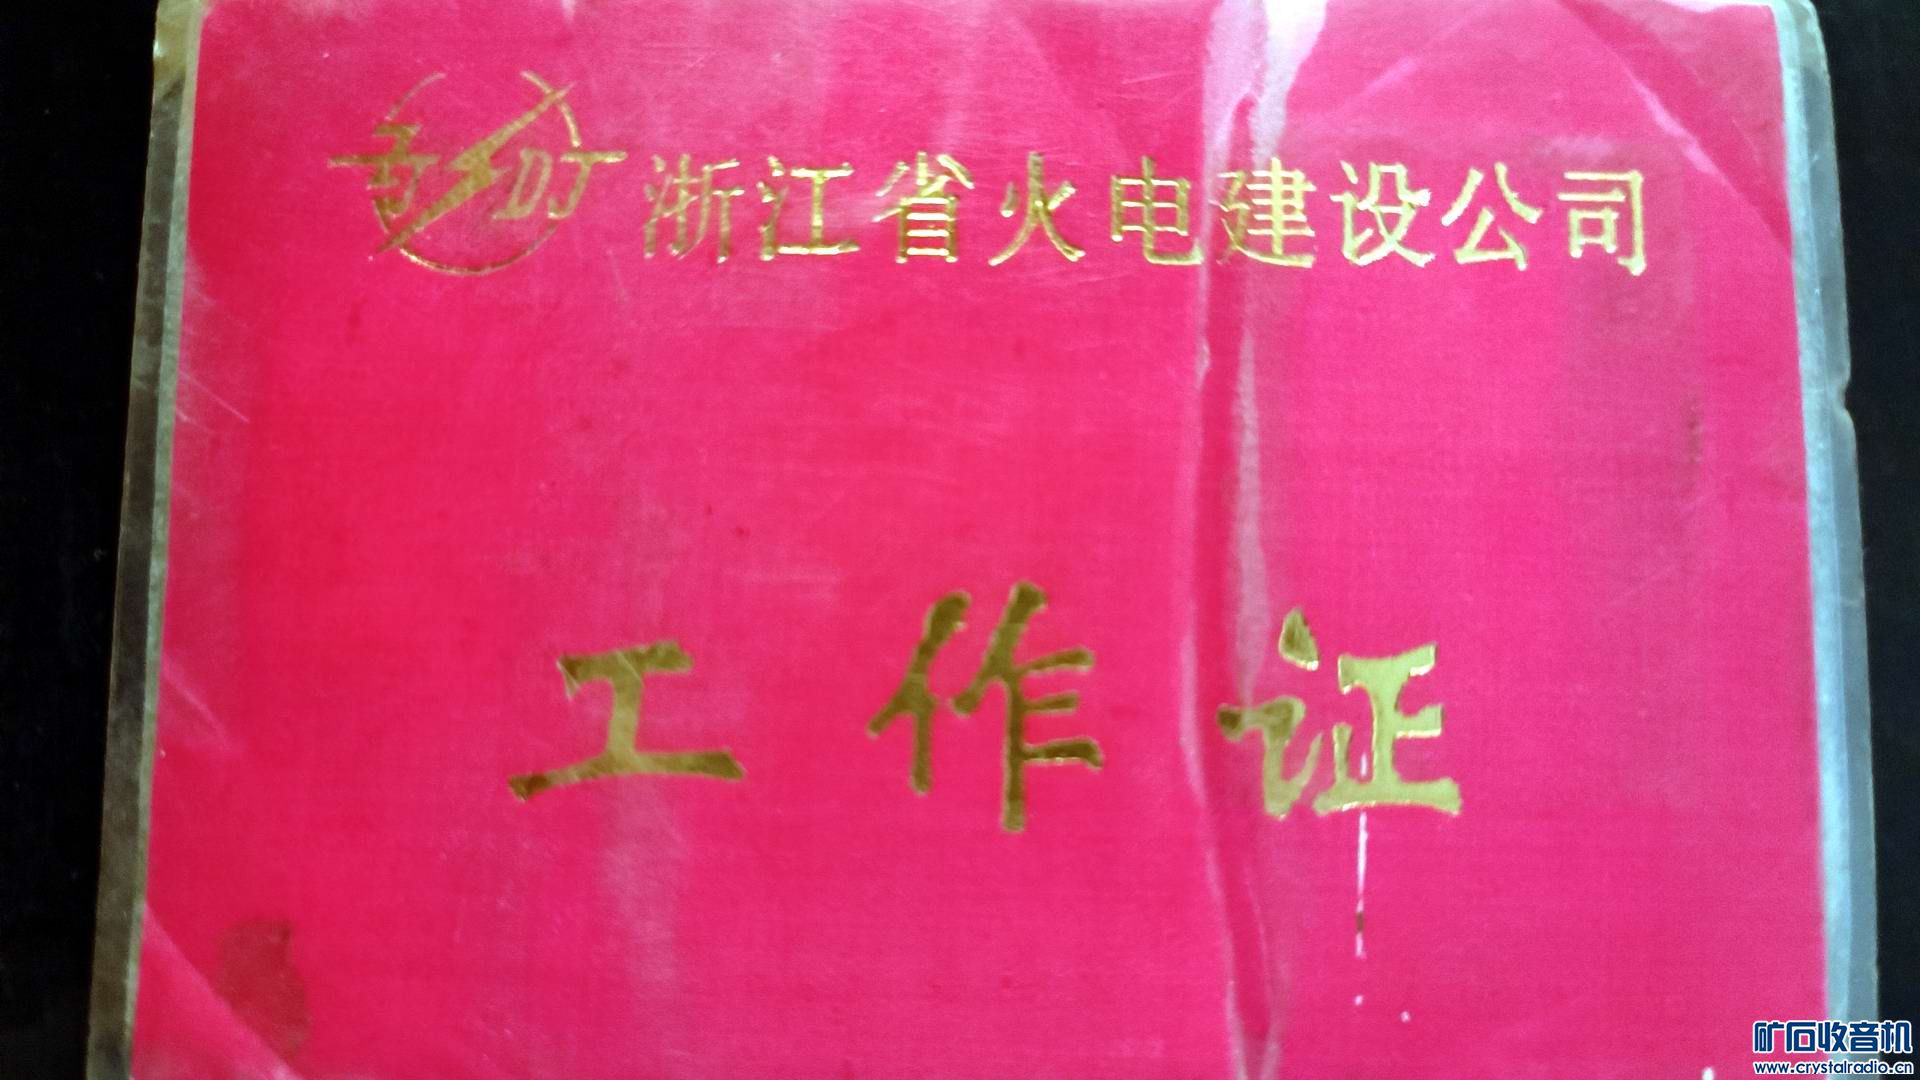 浙江省火电建设公司
工作证
矿石收音机
www.crystalradio.cn